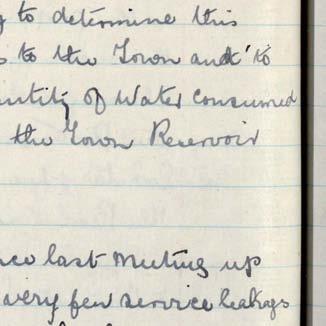 to determine this
to the Town and to
uantity of Water Consumed
the Town Reservoir
nce last Meeting up
very few service leakags